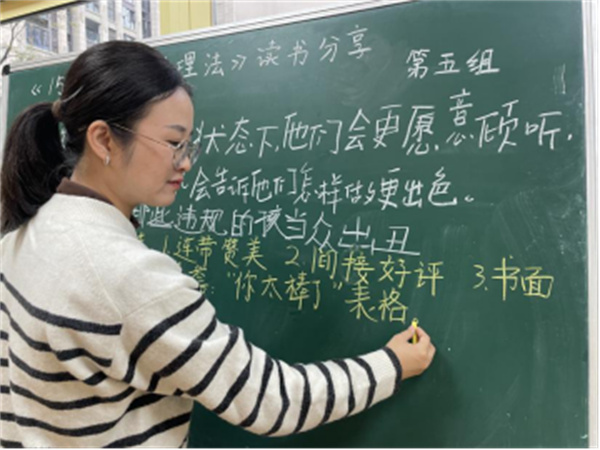 《15 理法》读书分享 第五组
状态下,他们会更愿意倾听,
会告诉他们怎样做更出色。
些违规的该当众出丑
1.连带赞美 2.间接好评 3.书面
:"你太棒了"表格